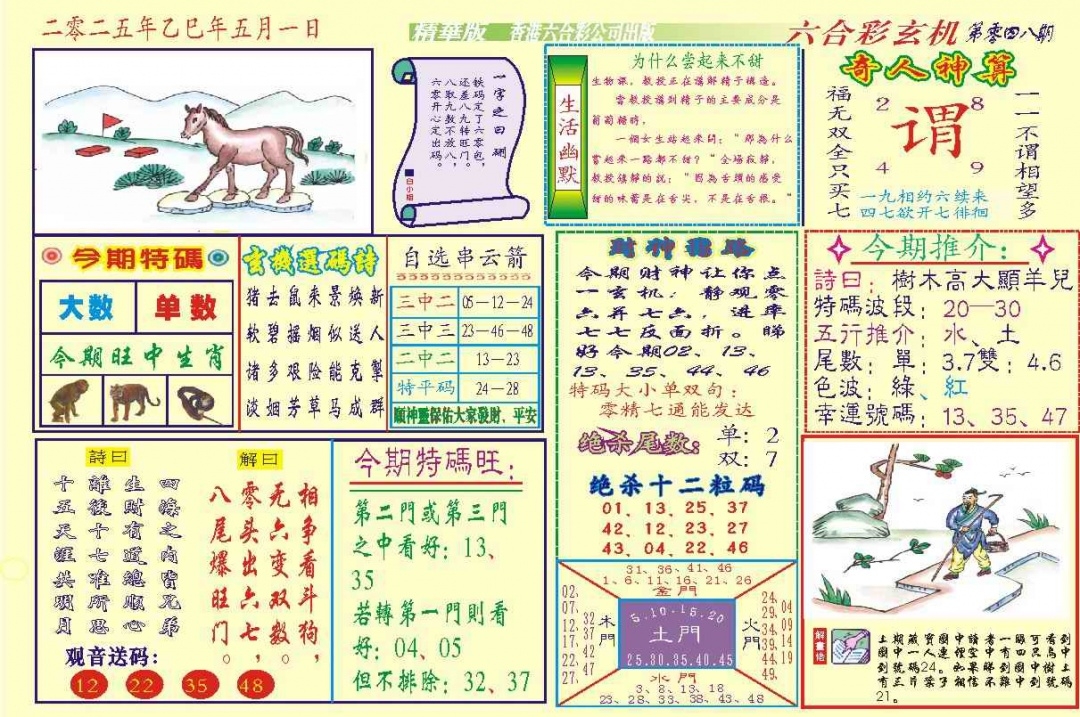 二零二五年乙巳年五月一日
精華版 香港六合彩公司出版
六合彩玄机 第零四八期
一字之曰砌
铁码定了六零包，
还差九九转门，
八取九数旺八门。
六零开心定不放
为什么尝起来不甜
生活幽默
生物课，教授正在讲解精子构造。
當教授講到精子的主要成分是
葡萄糖時，
一個女生站起来問："那為什么
嘗起来一路都不甜？"全場寂靜，
教授鎮靜的說："因為舌頭的感受
甜的味蕾是在舌尖，不是在舌根。"
奇人神算
福无双全只买七
2 8
谓
4 9
一一不谓相望多
一九相约六续来
四七欲开七徘徊
今期特碼
大数 单数
今期旺中生肖
玄機選碼詩
猪去鼠来景焕新
软碧摇烟似送人
诸多艰险能克掣
淡烟芳草马成群
自选串云箭
三中二 05—12—24
三中三 23—46—48
二中二 13—23
特平码 24—28
順神靈保佑大家發財、平安
财神理路
今期财神让你点
一玄机：静观零
六并七六，进率
七七反面折。睇
好今期02、13、
13、35、44、46
特码大小单双句：
零精七通能发达
绝杀尾数： 单：2
双：7
绝杀十二粒码
01、13、25、37
42、12、23、27
43、04、22、46
今期推介：
詩曰：樹木高大顯羊兒
特碼波段：20—30
五行推介：水、土
尾數：單：3.7雙：4.6
色波：綠、紅
幸運號碼：13、35、47
詩曰
四海之内皆兄弟
生財有道總順心
離後十七准所思
十五天涯共明月
解曰
相争看斗狗，
无六变双数，
零头出六七，
八尾爆旺门
观音送码：
12 22 35 48
今期特碼旺：
第二門或第三門
之中看好：13、
35
若轉第一門則看
好：04、05
但不排除：32、37
31、36、41、46
1、6、11、16、21、26
金門
02、07、12、17、22、27、
32、37、42、47
木門
5.10.15.20
土門
25.30.35.40.45
火門
24、29、34、39、44、49、
04、09、14、19
水門
3、8、13、18
23、28、33、38、43、48
解畫佬
上期藏寶圖中讀者一睇可看到
圖中一人連空中有四只鳥中
到號碼24。如果睇到圖中樹上
有三片葉子相信不難中到號碼
21。